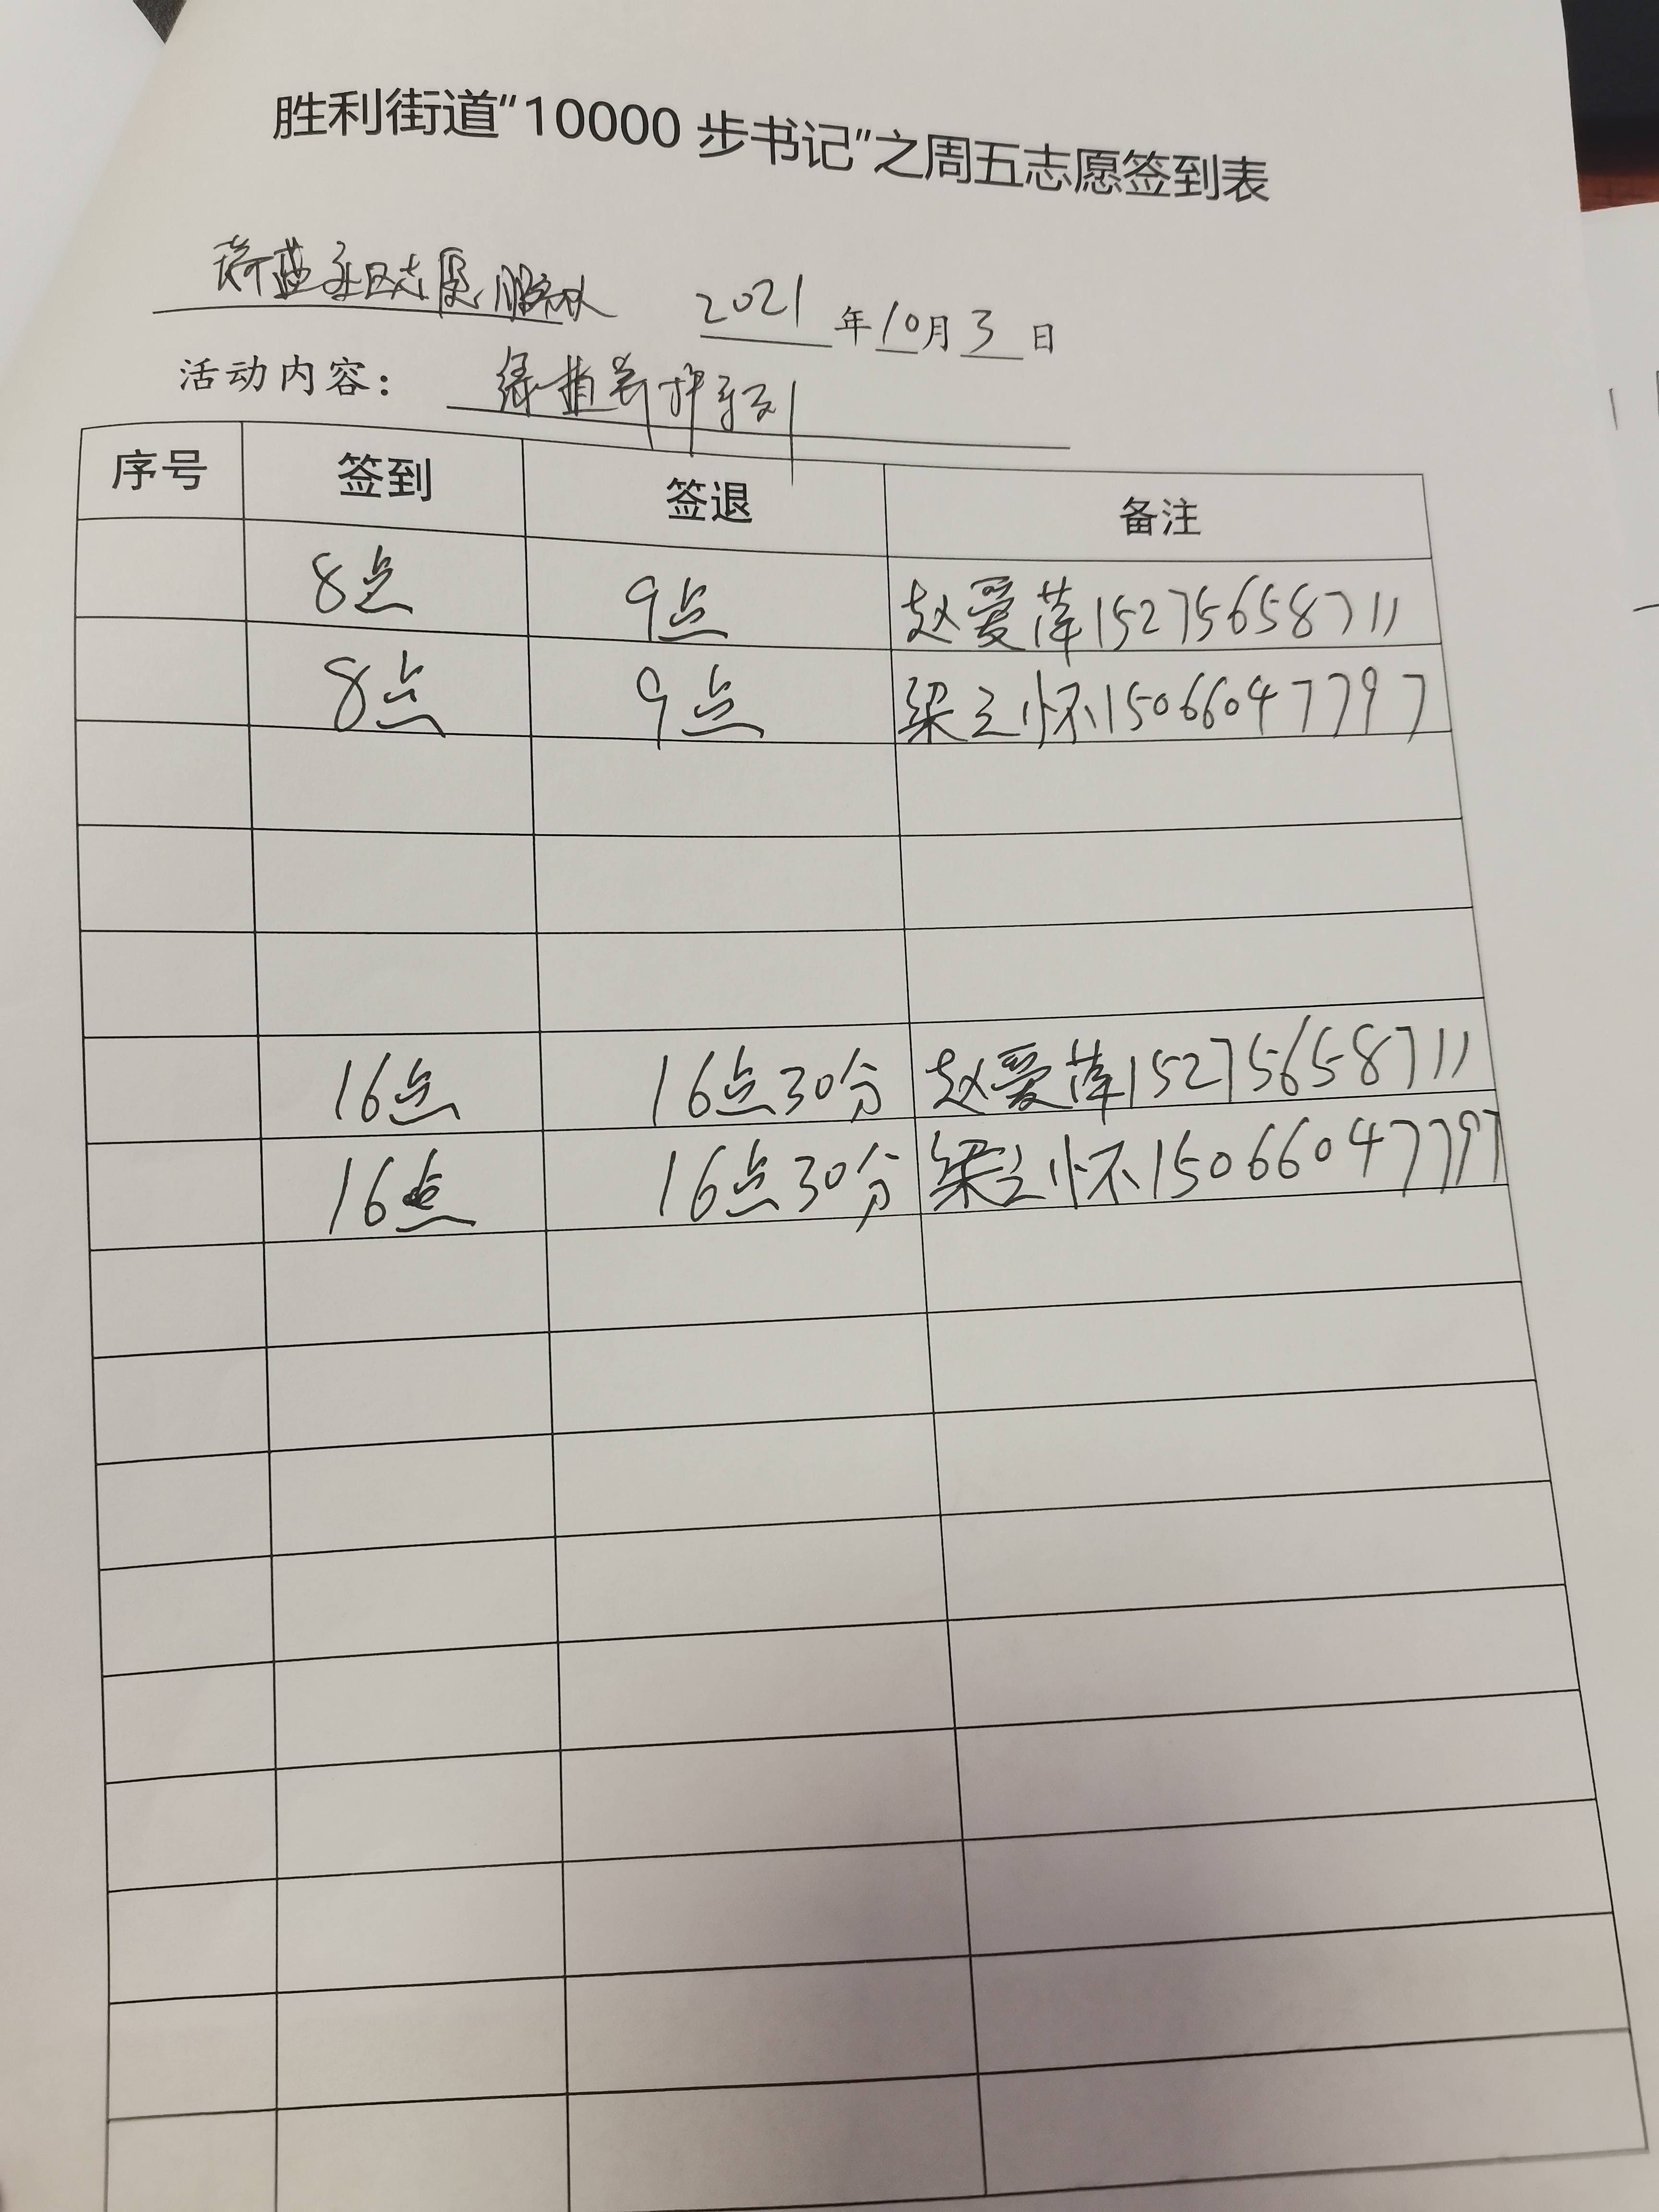 胜利街道“10000 步书记”之周五志愿签到表
蔚蓝社区志愿服务队 2021 年 10 月 3 日
活动内容: 绿植养护
序号 签到 签退 备注
8点 9点 赵爱萍15275658711
8点 9点 梁立怀15066047797
16点 16点30分 赵爱萍15275658711
16点 16点30分 梁立怀15066047797